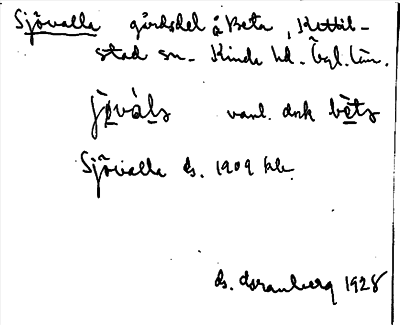 Sjövalla gårdsdel å Beta, Kettil-
stad sn. Kinda hd. Ögl. län.
jø̀vàlₐ vanl. dock bètₐ
Sjövalla ds. 1909 kk.
ds. Granberg 1928